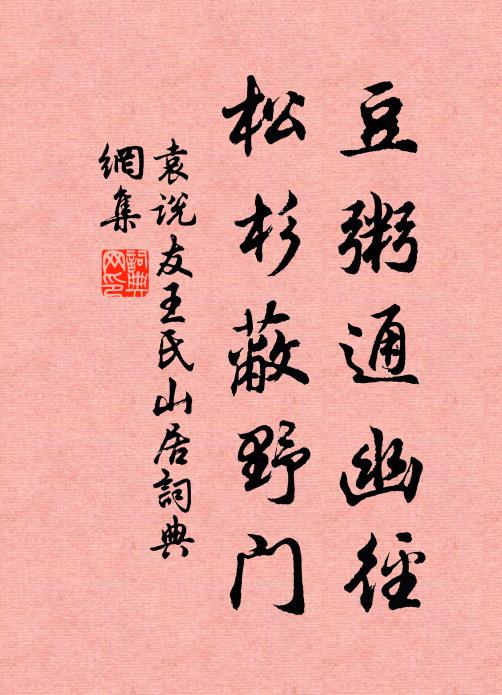 豆粥通幽徑
松杉蔽野門
袁说友王氏山居詞典
網集
詞典
网印